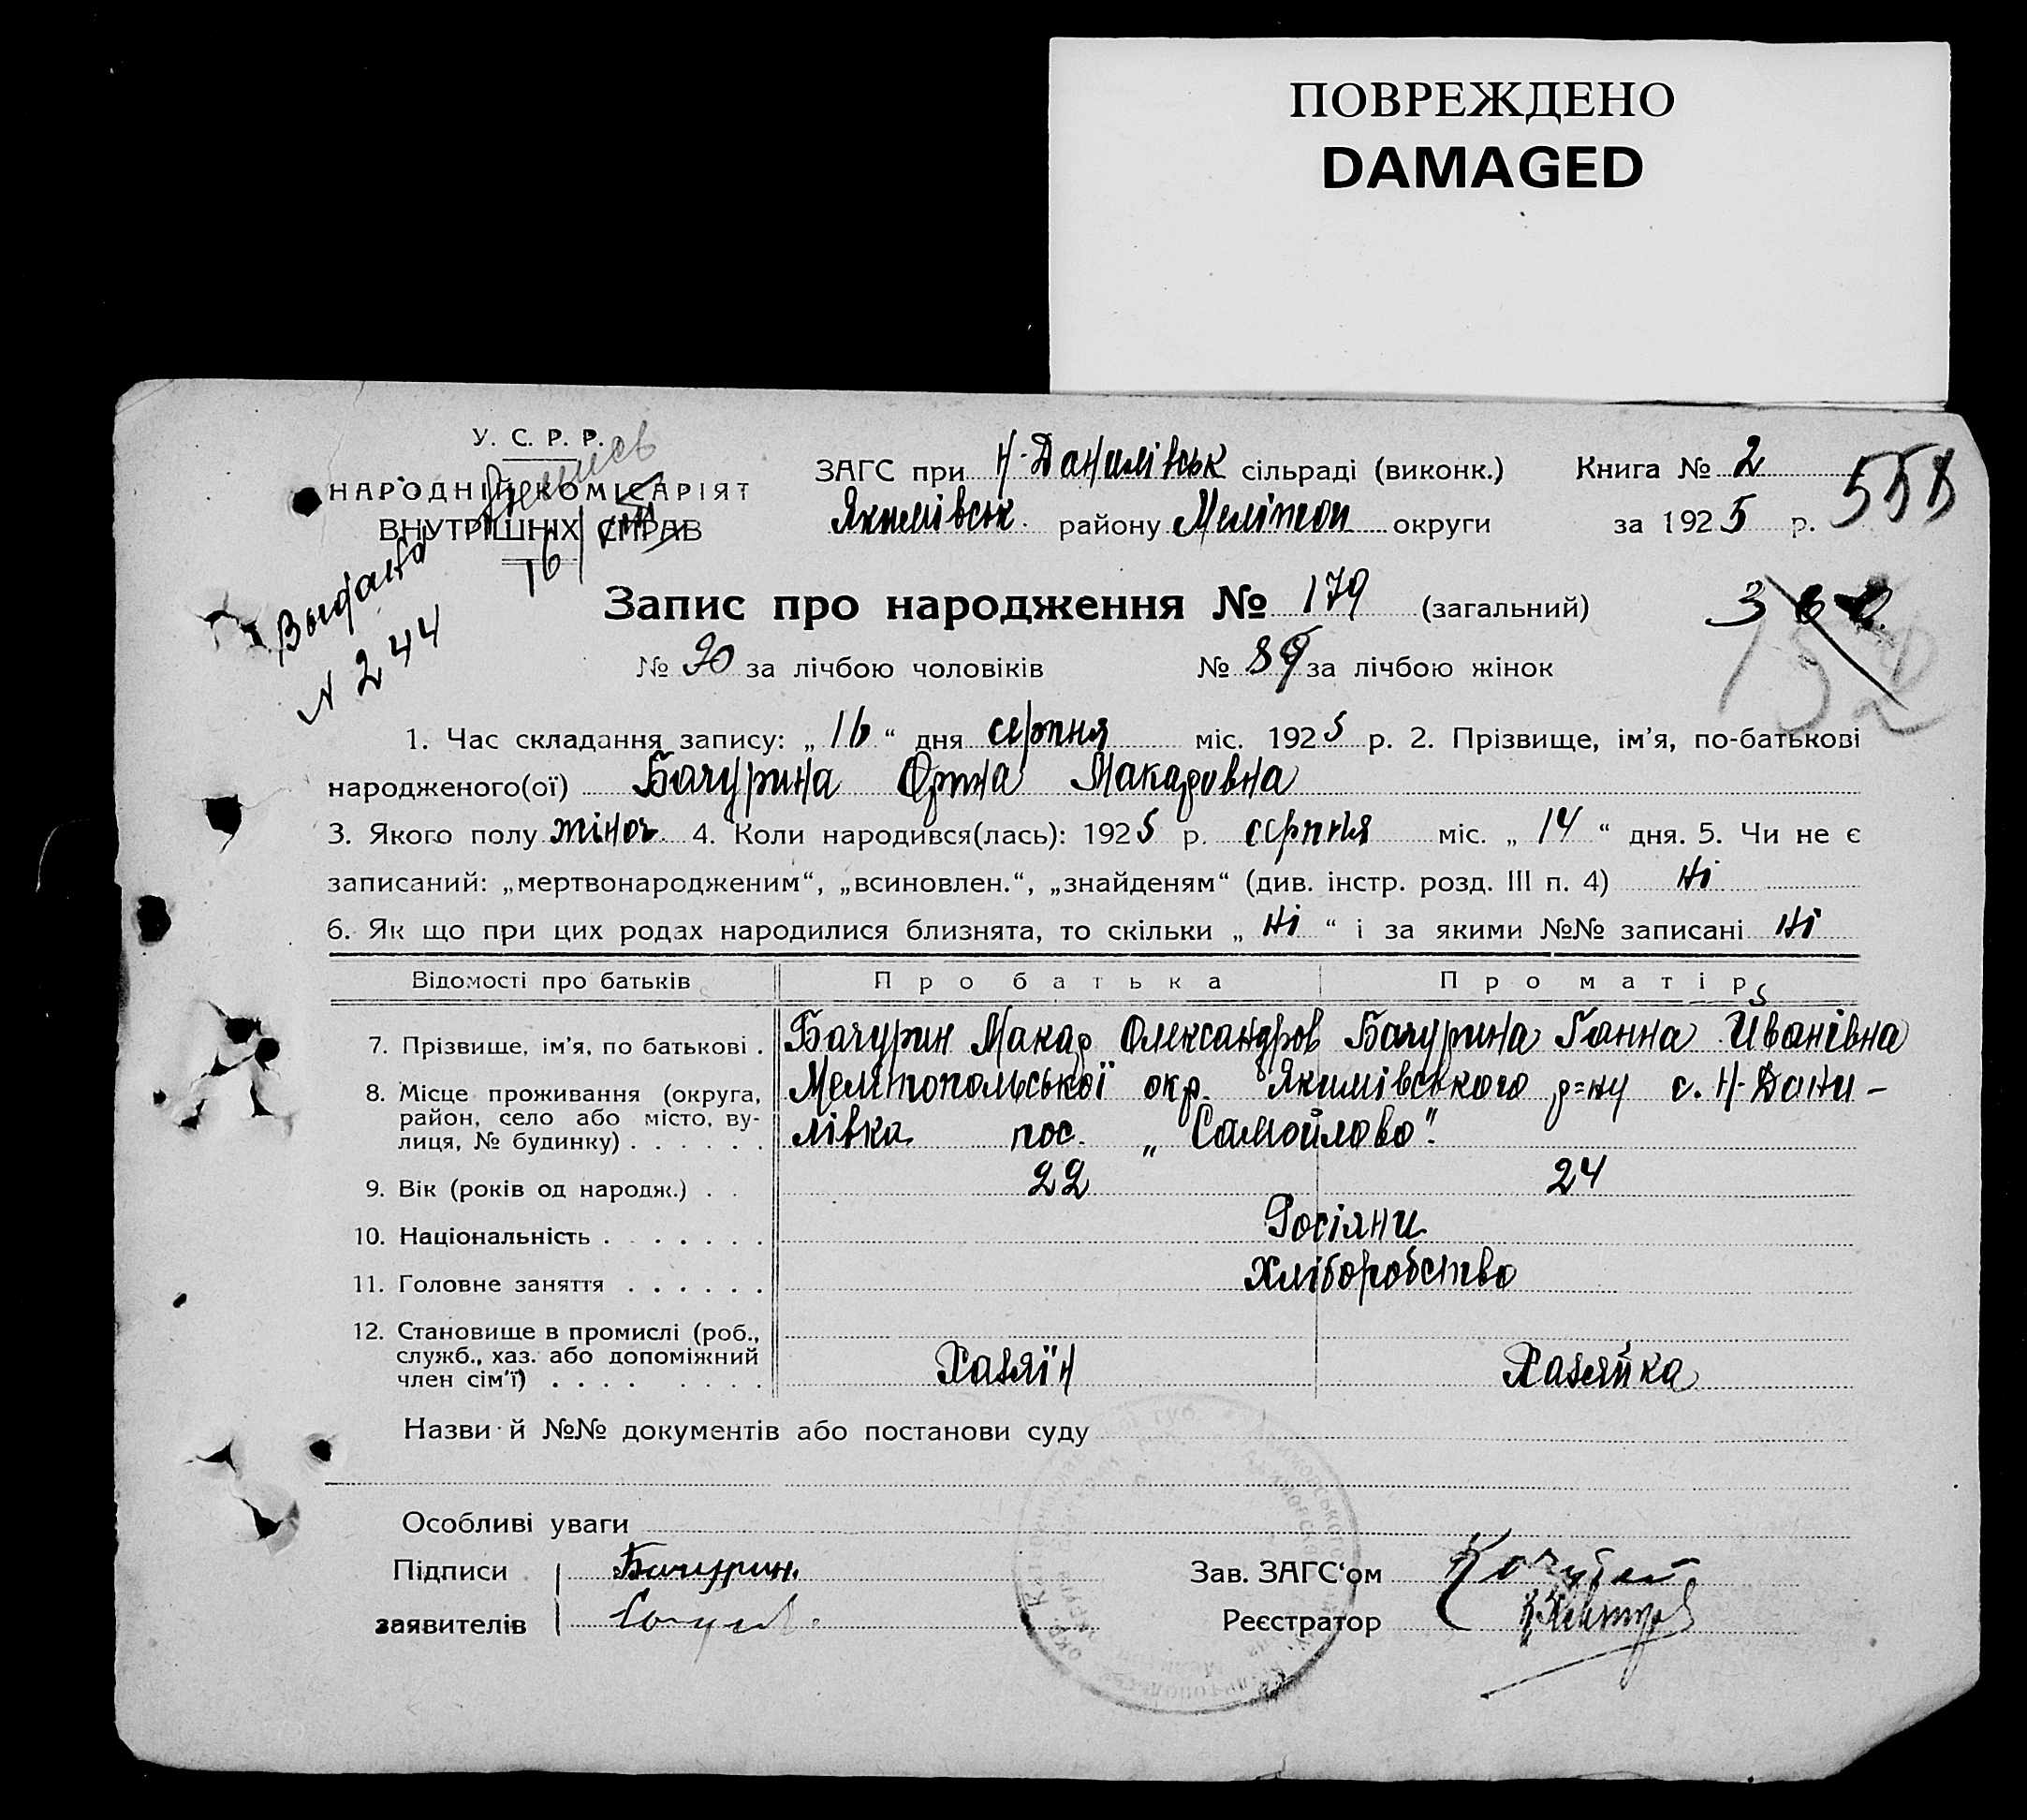 ПОВРЕЖДЕНО
DAMAGED
У. С. Р. Р.
НАРОДНІЙ КОМІСАРІЯТ
ВНУТРІШНІХ СПРАВ
Выдано
16
N 244
ЗАГС при Н-Данилівськ сільраді (виконк.) Книга № 2
Якимівськ. району Мелітоп округи за 1925 р.
Запис про народження № 179 (загальний)
№ 90 за лічбою чоловіків № 89 за лічбою жінок
1. Час складання запису: „16“ дня серпня міс. 1925 р. 2. Прізвище, ім’я, по-батькові
народженого(ої) Бачурина Орина Макаровна
3. Якого полу жіноч. 4. Коли народився(лась): 1925 р. серпня міс. „14“ дня. 5. Чи не є
записаний: „мертвонародженим“, „всиновлен.“, „знайденям“ (див. інстр. розд. III п. 4) Ні
6. Як що при цих родах народилися близнята, то скільки „Ні“ і за якими №№ записані Ні
Відомості про батьків Про батька Про матір
7. Прізвище, ім’я, по батькові . Бачурин Макар Олександров Бачурина Ганна Иванівна
8. Місце проживання (округа, Мелитопольської окр. Якимівського р=ну с. Н-Дани-
район, село або місто, ву-
лиця, № будинку) . . . . . . лівка пос. „Самойлово“.
9. Вік (років од народж.) . . 22 24
10. Національність . . . . . . . Росіяни
11. Головне заняття . . . . . . Хліборобство
12. Становище в промислі (роб.,
служб., хаз. або допоміжний
член сім’ї) . . . . . . . . Хазяїн Хазяйка
Назви й №№ документів або постанови суду
Особливі уваги
Підписи Бачурин. Зав. ЗАГС‘ом
заявителів Реєстратор